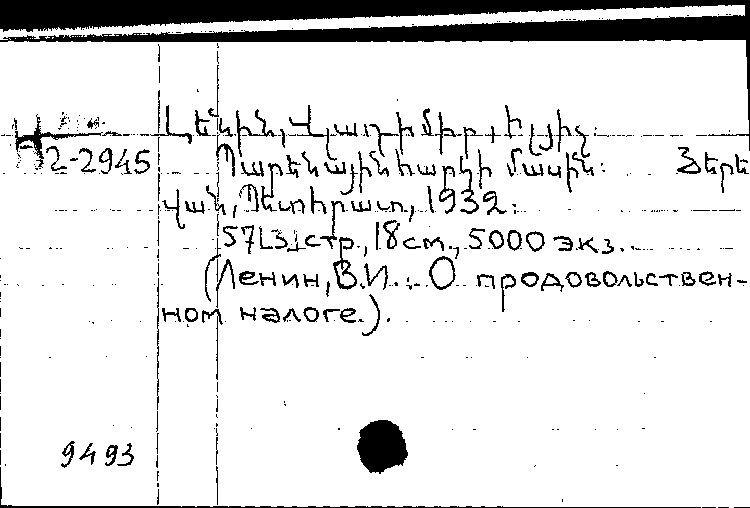 Լենին, Վլադիմիր, Իլյիչ.
2-2945 Պարենային հարկի մասին: Յերե
վան, Պետհրատ, 1932.
57[3]стр., 18см., 5000 экз.
(Ленин, В.И.: О продовольствен-
ном налоге.).
9493